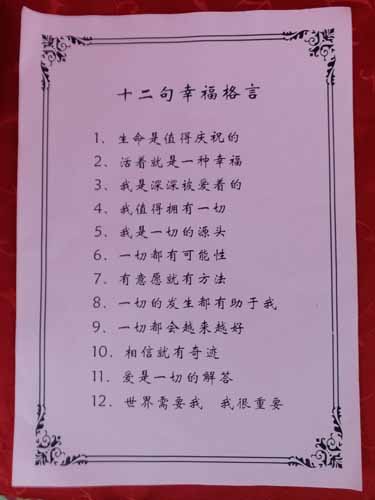 十二句幸福格言
1、生命是值得庆祝的
2、活着就是一种幸福
3、我是深深被爱着的
4、我值得拥有一切
5、我是一切的源头
6、一切都有可能性
7、有意愿就有方法
8、一切的发生都有助于我
9、一切都会越来越好
10、相信就有奇迹
11、爱是一切的解答
12、世界需要我　我很重要